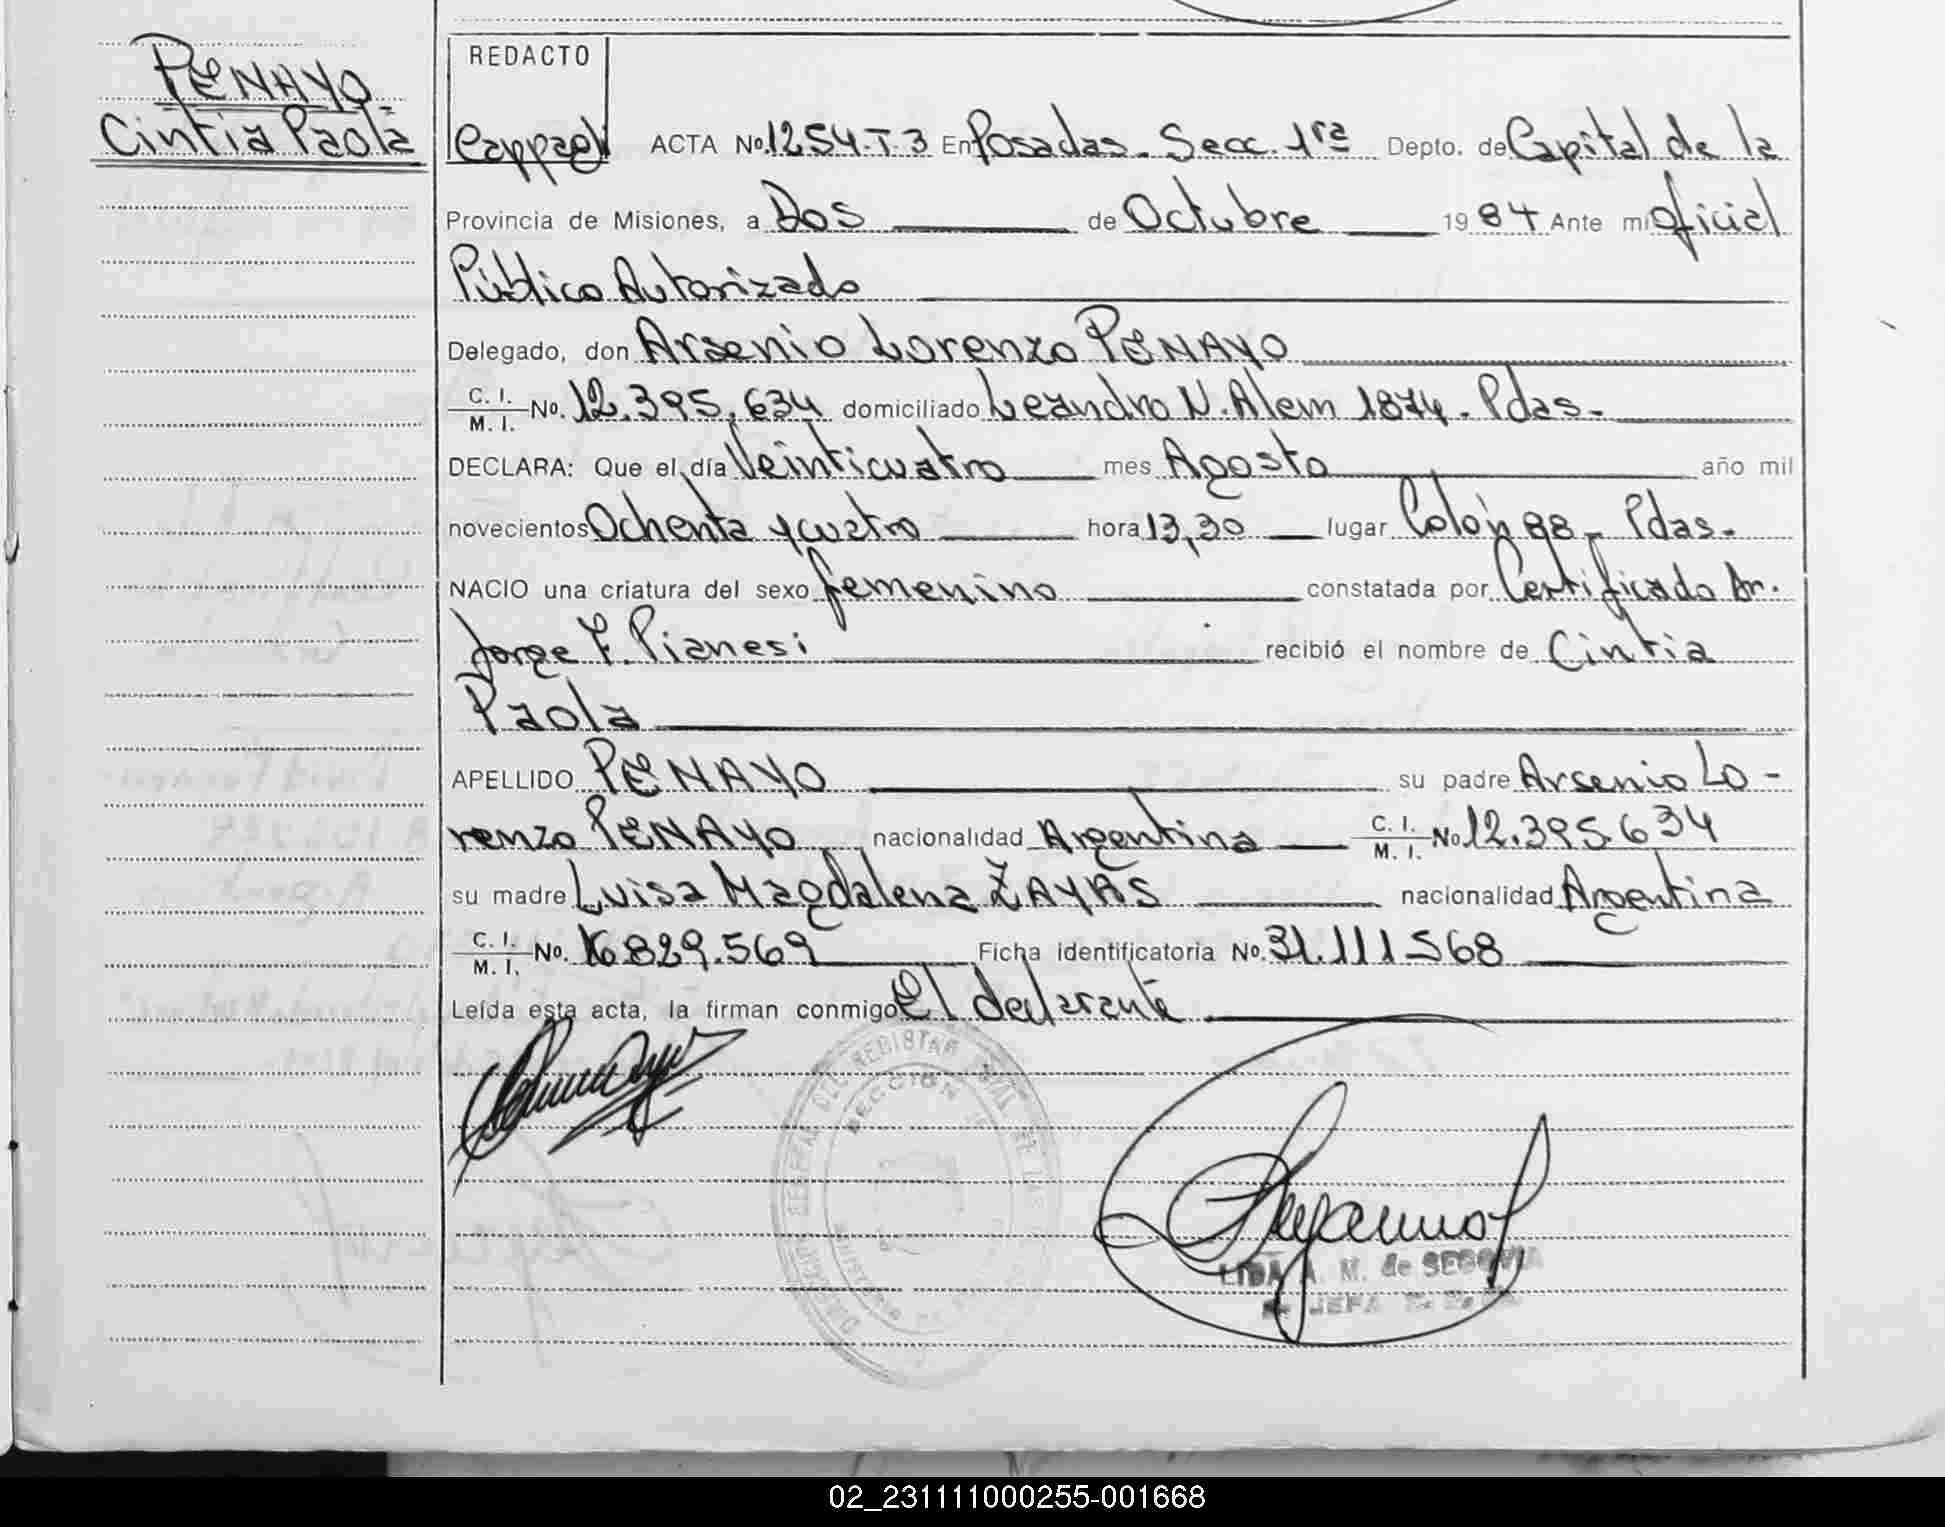 PENAYO
Cintia Paola
REDACTO
ACTA No. 1254-T-3 En Posadas - Secc. 1ra Depto. de Capital de la
Provincia de Misiones, a Dos de Octubre 1984 Ante mi Oficial
Público Autorizado
Delegado, don Arsenio Lorenzo PENAYO
C. I. M. I. No. 12.395.634 domiciliado Leandro N. Alem 1874 - Pdas-
DECLARA: Que el día Veinticuatro mes Agosto año mil
novecientos Ochenta y cuatro hora 13,30 lugar Colón 88 - Pdas-
NACIO una criatura del sexo femenino constatada por Certificado Dr.
Jorge F. Pianesi recibió el nombre de Cintia
Paola
APELLIDO PENAYO su padre Arsenio Lo-
renzo PENAYO nacionalidad Argentina C. I. M. I. No 12.395.634
su madre Luisa Magdalena ZAYAS nacionalidad Argentina
C. I. M. I. No. 16.829.569 Ficha identificatoria No. 31.111.568
Leída esta acta, la firman conmigo El declarante
LIDA A. M. de SEGOVIA
JEFA
02_231111000255-001668